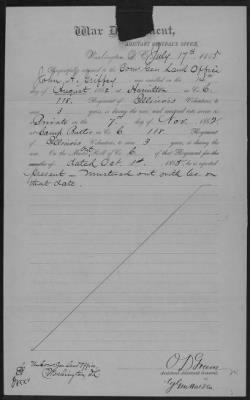 War Department,
ADJUTANT GENERAL'S OFFICE,
Washington, D.C., July 17th 1885
Respectfully returned to the Com'r Gen Land Office
John A. Griffey
was enrolled on the
day of August 1862 at Hamilton in Co. C,
118 Regiment of Illinois Volunteers, to
serve 3 years, or during the war, and mustered into service as
Private on the 7th day of Nov. 1862
at Camp Butler in Co. C 118 Regiment
of Illinois Vols., to serve 3 years, or during the
war. On the Muster Roll of Co. C of that Regiment for the
months of dated Oct 1st 1865 he is reported
present — Mustered out with co on
that date.
The Com'r Gen Land Office,
Washington, D.C.
O D Greene
Assistant Adjutant General.